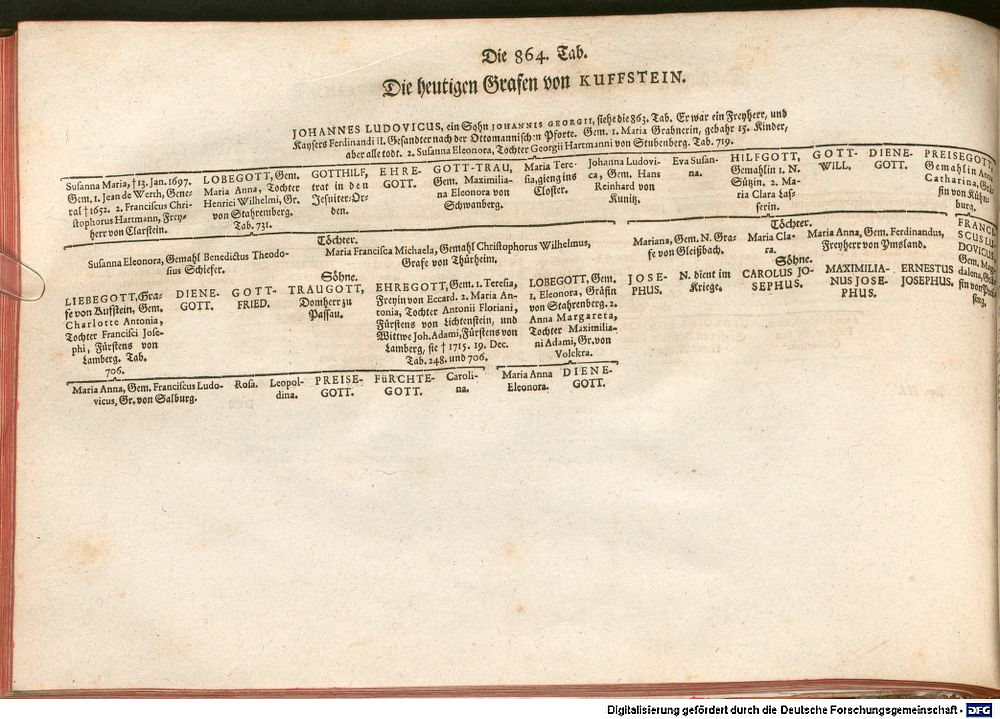 Die 864. Tab.
Die heutigen Grafen von KUFFSTEIN.
JOHANNES LUDOVICUS, ein Sohn JOHANNIS GEORGII, siehe die 863. Tab. Er war ein Freyherr, und
Kaysers Ferdinandi II. Gesandter nach der Ottomannischen Pforte. Gem. 1. Maria Grabnerin, gebahr 15. Kinder,
aber alle todt. 2. Susanna Eleonora, Tochter Georgii Hartmanni von Stubenberg. Tab. 719.
Susanna Maria, † 13. Jan. 1697.
Gem. 1. Jean de Werth, Gene-
ral † 1652. 2. Franciscus Chri-
stophorus Hartmann, Frey-
herr von Clarstein.
LOBEGOTT, Gem.
Maria Anna, Tochter
Henrici Wilhelmi, Gr.
von Stahremberg.
Tab. 731.
GOTTHILF,
trat in den
Jesuiter-Or-
den.
EHRE-
GOTT.
GOTT-TRAU,
Gem. Maximilia-
na Eleonora von
Schwanberg.
Maria Tere-
sia, gieng ins
Closter.
Johanna Ludovi-
ca, Gem. Hans
Reinhard von
Kunitz.
Eva Susan-
na.
HILFGOTT,
Gemahlin 1. N.
Sützin. 2. Ma-
ria Clara Las-
serin.
GOTT-
WILL.
DIENE-
GOTT.
PREISEGOTT,
Gemahlin Anna
Catharina, Grä-
fin von Kühn-
burg.
Töchter.
Susanna Eleonora, Gemahl Benedictus Theodo-
sius Schiefer.
Maria Francisca Michaela, Gemahl Christophorus Wilhelmus,
Grafe von Thürheim.
Söhne.
LIEBEGOTT, Gra-
fe von Kuffstein, Gem.
Charlotte Antonia,
Tochter Francisci Jose-
phi, Fürstens von
Lamberg. Tab.
706.
DIENE-
GOTT.
GOTT-
FRIED.
TRAUGOTT,
Domherr zu
Passau.
EHREGOTT, Gem. 1. Teresia,
Freyin von Eccard. 2. Maria An-
tonia, Tochter Antonii Floriani,
Fürstens von Lichtenstein, und
Wittwe Joh. Adami, Fürstens von
Lamberg, sie † 1715. 19. Dec.
Tab. 248. und 706.
LOBEGOTT, Gem.
1. Eleonora, Gräfin
von Stahrenberg. 2.
Anna Margareta,
Tochter Maximilia-
ni Adami, Gr. von
Volckra.
Töchter.
Mariana, Gem. N. Gra-
fe von Gleißbach.
Maria Cla-
ra.
Maria Anna, Gem. Ferdinandus,
Freyherr von Ymsland.
Söhne.
JOSE-
PHUS.
N. dient im
Kriege.
CAROLUS JO-
SEPHUS.
MAXIMILIA-
NUS JOSE-
PHUS.
ERNESTUS
JOSEPHUS.
FRANCI-
SCUS LU-
DOVICUS,
Gem. Mag-
dalena, Grä-
fin von
Maria Anna, Gem. Franciscus Ludo-
vicus, Gr. von Salburg.
Rosa.
Leopol-
dina.
PREISE-
GOTT.
FüRCHTE-
GOTT.
Caroli-
na.
Maria Anna
Eleonora.
DIENE-
GOTT.
Digitalisierung gefördert durch die Deutsche Forschungsgemeinschaft - DFG